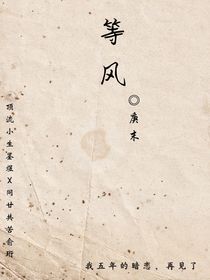 等风
◎庚末
顶流小生墨煜X同甘共苦俞珩
我五年的暗恋，再见了